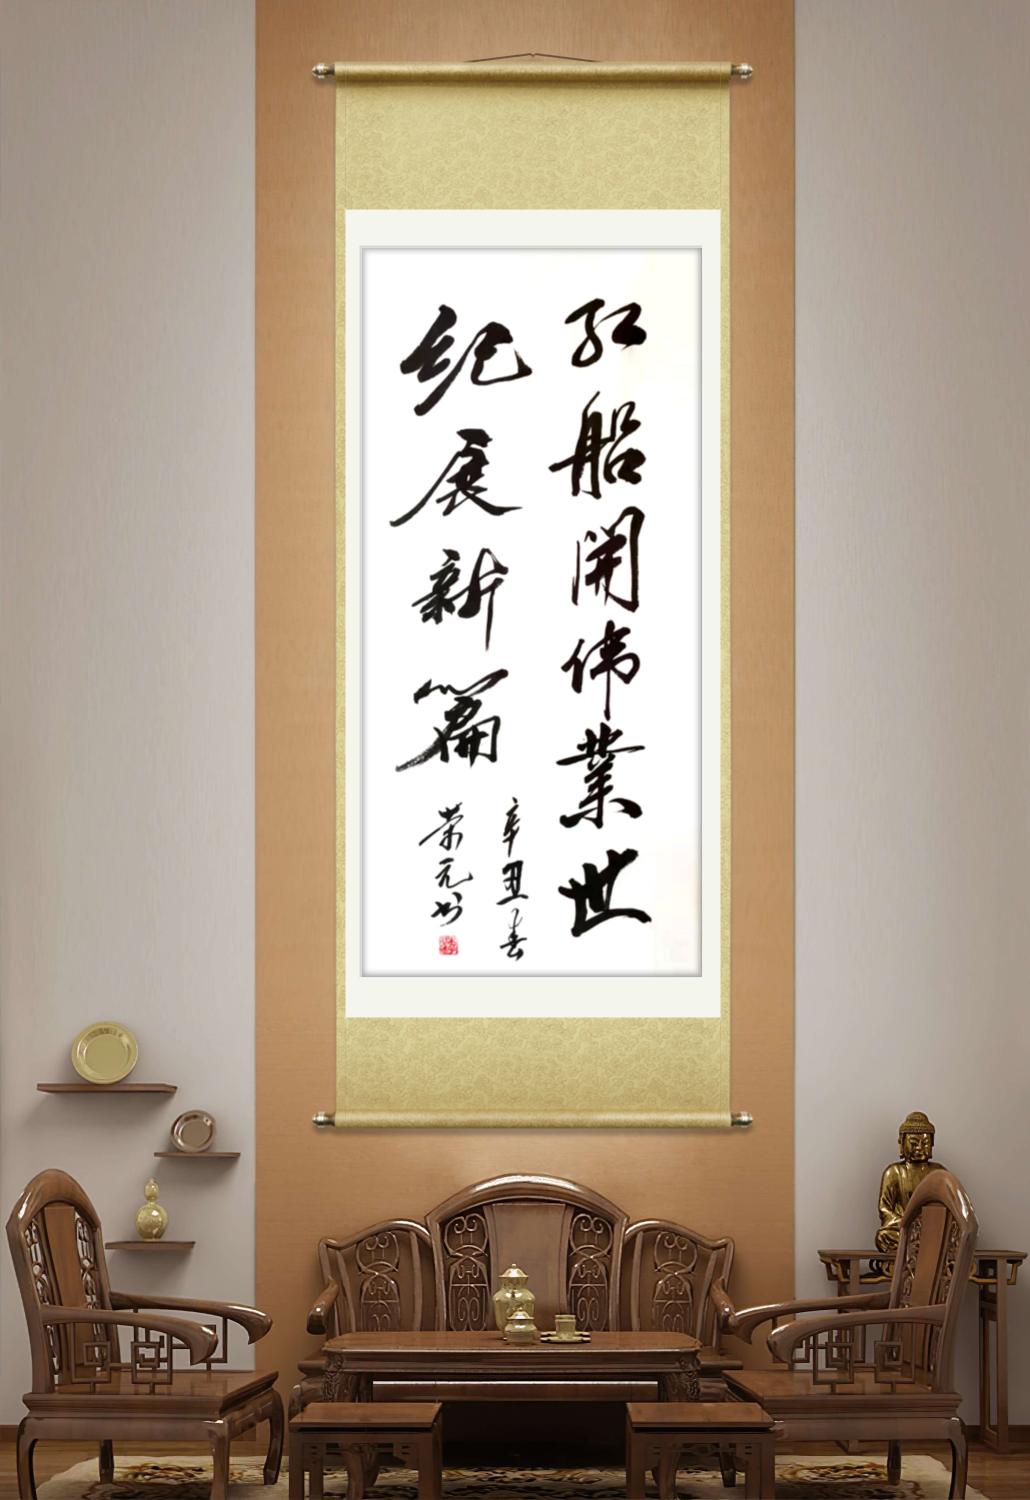 红船开伟業世
纪展新篇
辛丑春
荣元书